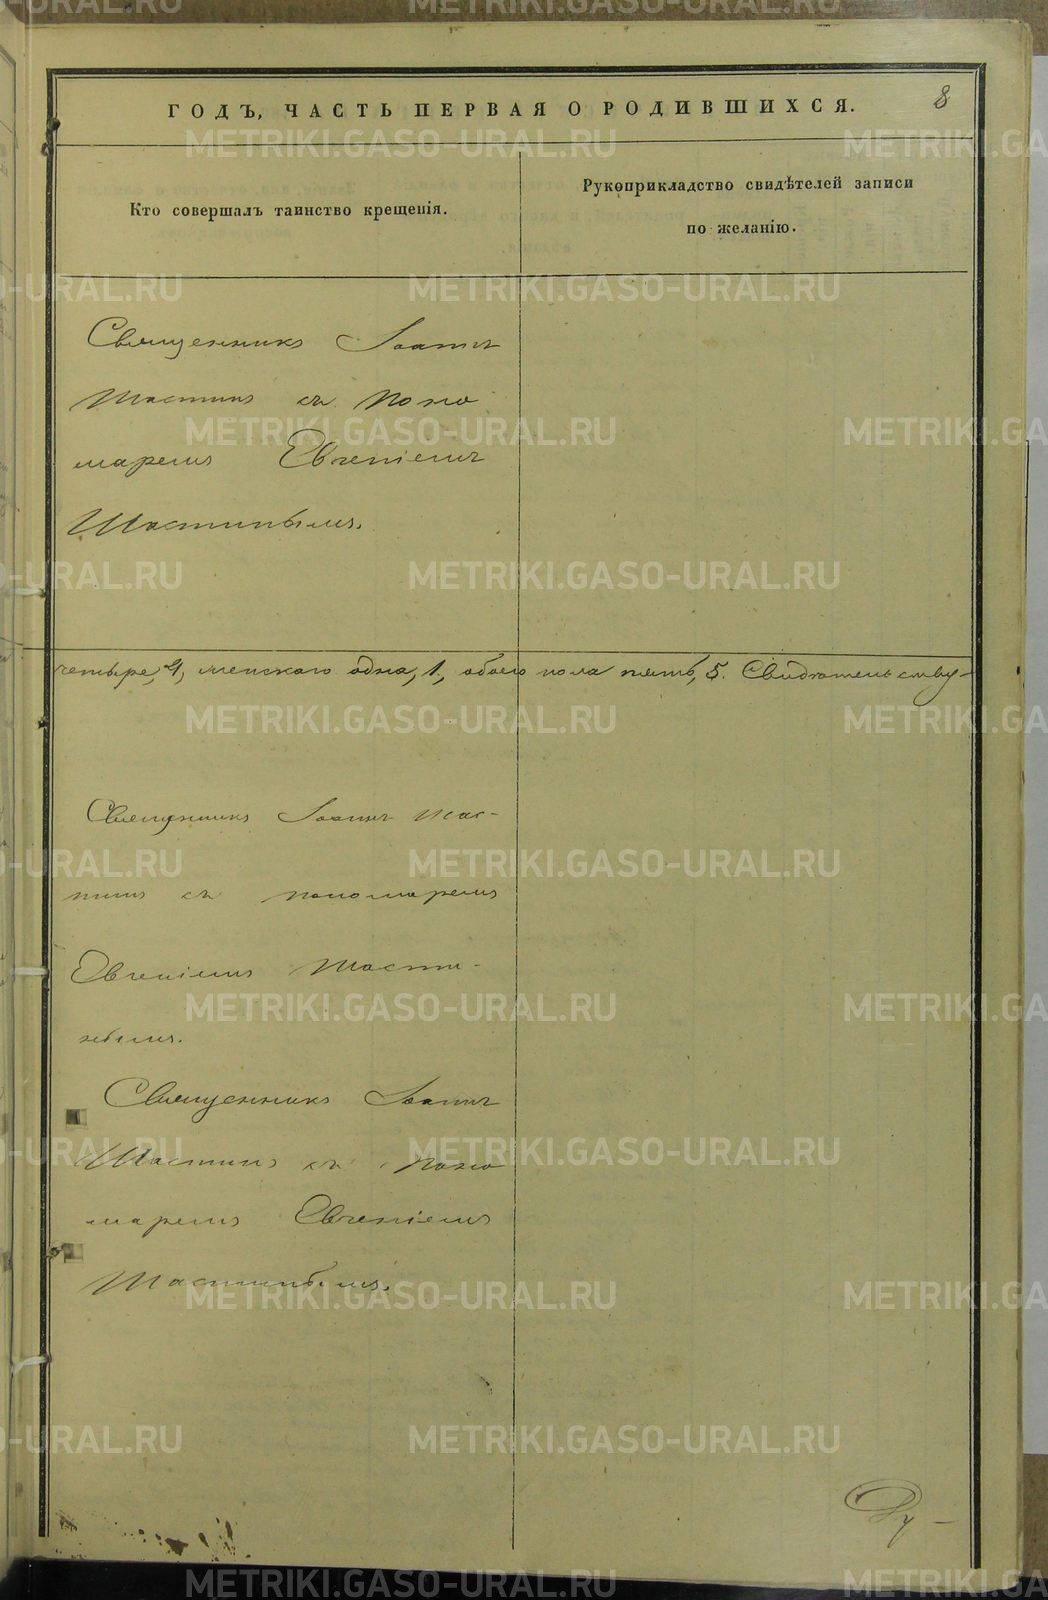 ГОДЪ, ЧАСТЬ ПЕРВАЯ О РОДИВШИХСЯ.
8
Кто совершалъ таинство крещенія.
Рукоприкладство свидѣтелей записи
по желанію.
Священникъ Іоаннъ
Шастинъ съ Поно
маремъ Евгеніемъ
Шастинымъ.
четыре, 4, женскаго одна, 1, обоего пола пять, 5. Свидѣтельству-
Священникъ Іоаннъ Шас-
тинъ съ пономаремъ
Евгеніемъ Шасти-
нымъ.
Священникъ Іоаннъ
Шастинъ съ Поно
маремъ Евгеніемъ
Шастинымъ.
METRIKI.GASO-URAL.RU